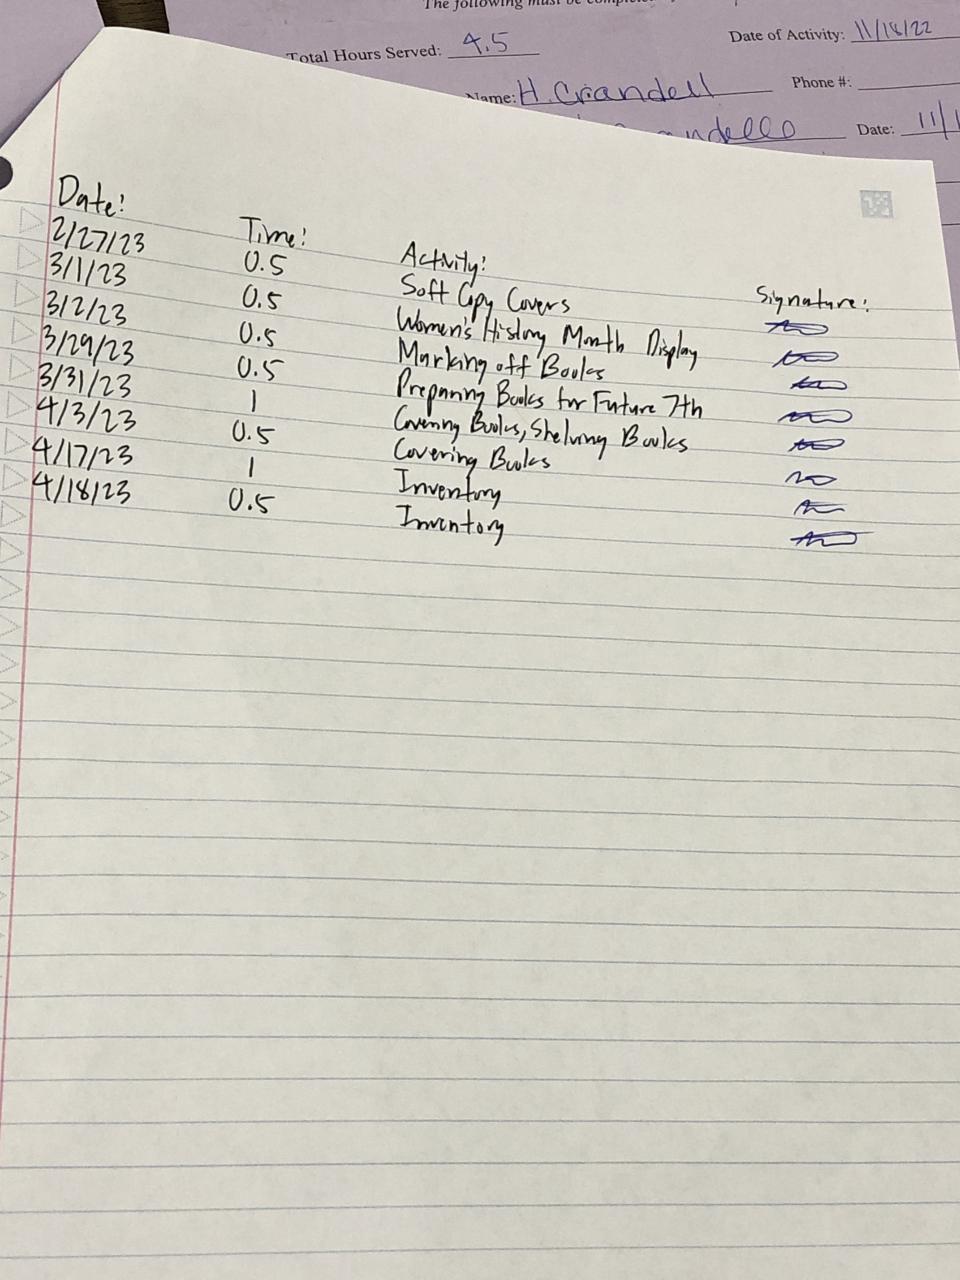 The following must be comple
Total Hours Served: 4.5 Date of Activity: 11/18/22
Name: H. Crandell Phone #:
Date: 11/1
Date: Time: Activity: Signature:
2/27/23 0.5 Soft Copy Covers
3/1/23 0.5 Women's History Month Display
3/2/23 0.5 Marking off Books
3/29/23 0.5 Preparing Books for Future 7th
3/31/23 1 Covering Books, Shelving Books
4/3/23 0.5 Covering Books
4/17/23 1 Inventory
4/18/23 0.5 Inventory